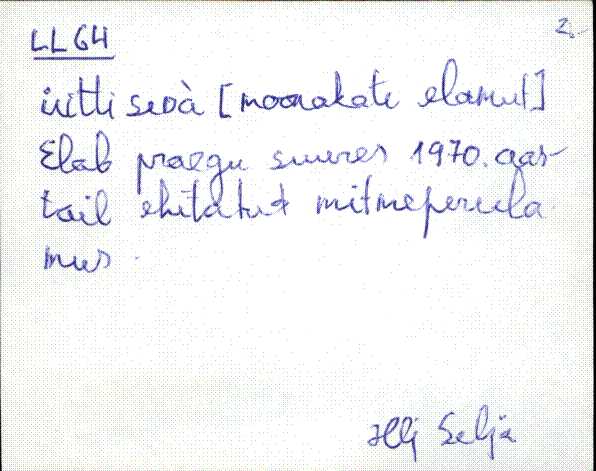 2.
LL64
ütti sedà [moonakate elamut]
Elab praegu suures 1970. aas-
tail ehitatud mitmeperela
mus.
Hlj Selja